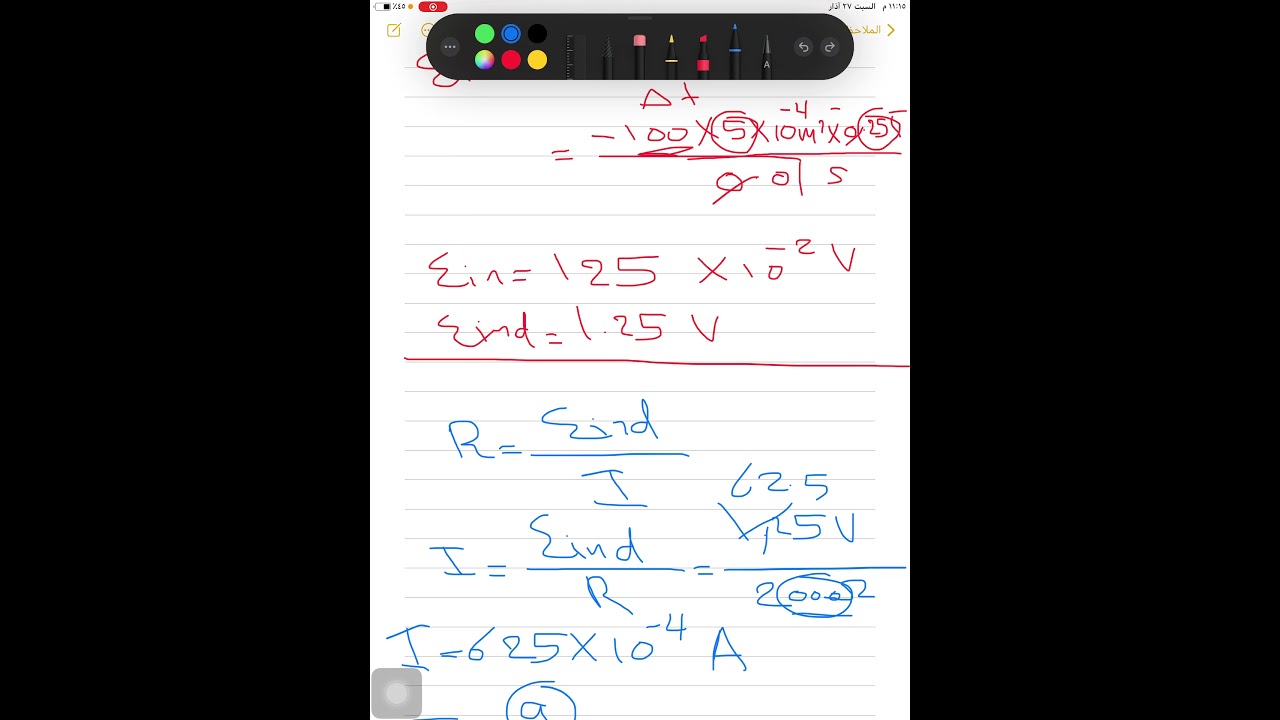 ١١:١٥ م السبت ٢٧ آذار ٤٥٪
الملاحظ
A
Δt
= -100 × 5 × 10⁻⁴ m² × 0.25
0.01 S
Ein = 125 × 10⁻² V
Eind = 1.25 V
R = Eind / I
62.5
I = Eind / R = 1.25 V / 20002
I = 625 × 10⁻⁴ A
a